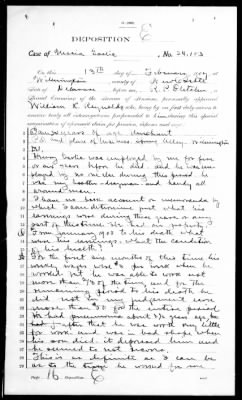 DEPOSITION E
Case of Leslie, No. 24.153
On this 13th day of February, 1889, at
Wilmington, county of New Castle
State of Delaware, before me, R. C. Fletcher, a
Special Examiner of the Bureau of Pensions, personally appeared
William K. Reynolds, who, being by me first duly sworn to
answer truly all interrogatories propounded to him during this special
examination of aforesaid claim for pension, deposes and says:
I am years of age, merchant
P.O. and place of business Spring Alley, Wilmington
Del.
Henry was employed by me for five
or six years before he died and he was em-
ployed by no one else during this period he
was my and handy all
around man.
I have no book account or memoranda by
which I can determine just what his
earnings were during these years or any
part of this time. He had no property.
Q From January, to his death what
were his earnings? What the condition
of his health?
A For the first six months of this time his
weekly wages were $ for when he
worked but he was able to work not
more than of the time, and for the
remaining period to his death he
did not in my judgement earn
more than $ for the entire period.
He had pneumonia about years ago
and after that he was worth very little
for work and was in bad shape when
his son died it depressed him and
he seemed to not
This is as definite as I can be
as to the he worked for me
Page 16 Deposition E